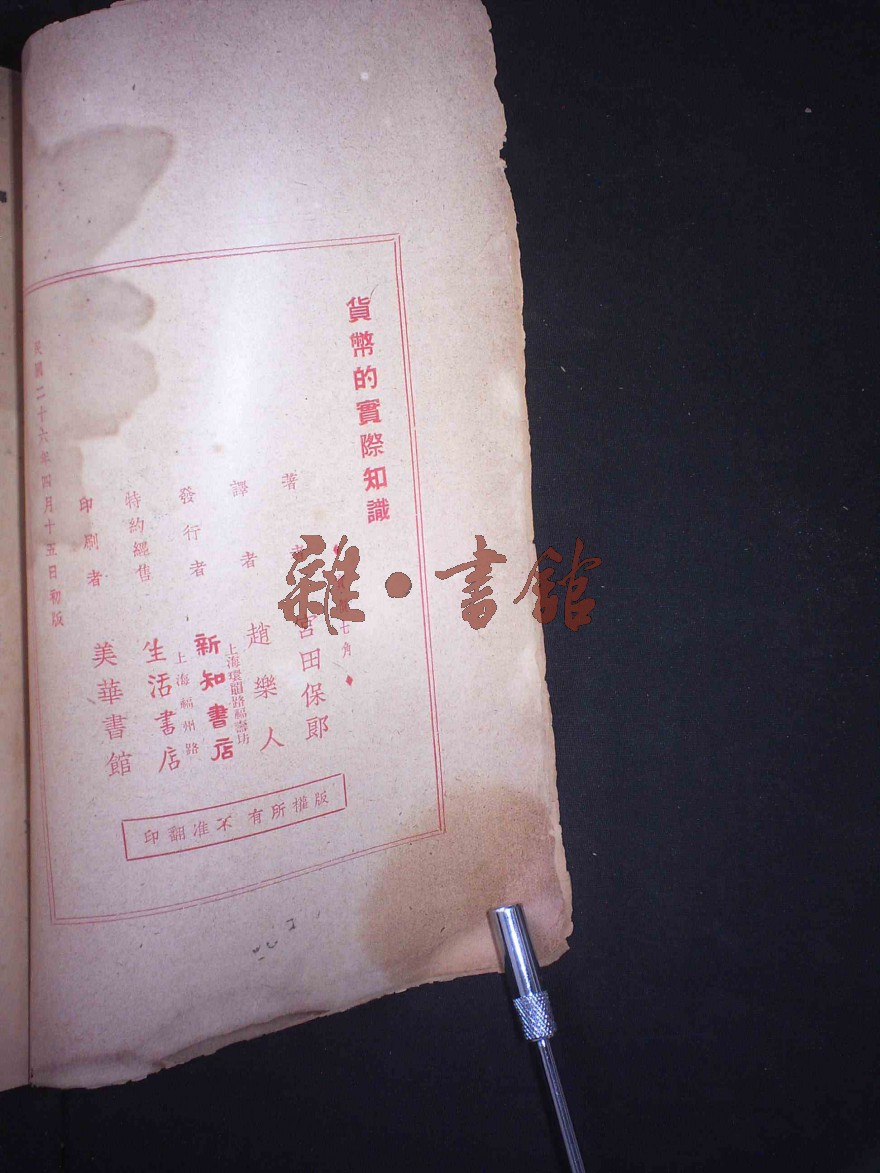 貨幣的實際知識
七角
著者 宮田保郎
譯者 趙樂人
上海環龍路福壽坊
發行者 新知書店
上海福州路
特約經售 生活書店
印刷者 美華書館
民國二十六年四月十五日初版
版權所有 不准翻印
雜·書館